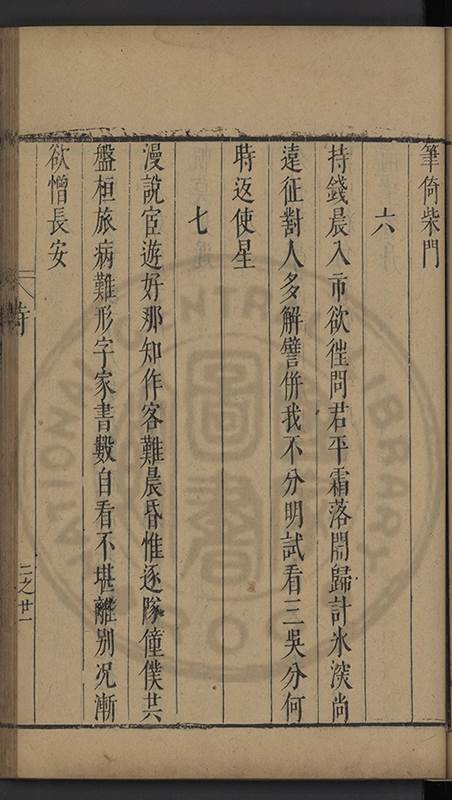 筆倚柴門
六
持錢晨入市欲徃問君平霜落開歸計氷深尚
遠征對人多解譬併我不分明試看三吳分何
時返使星
七
漫說宦遊好那知作客難晨昏惟逐隊僮僕共
盤桓旅病難形字家書數自看不堪離别况漸
欲憎長安
二之廿一